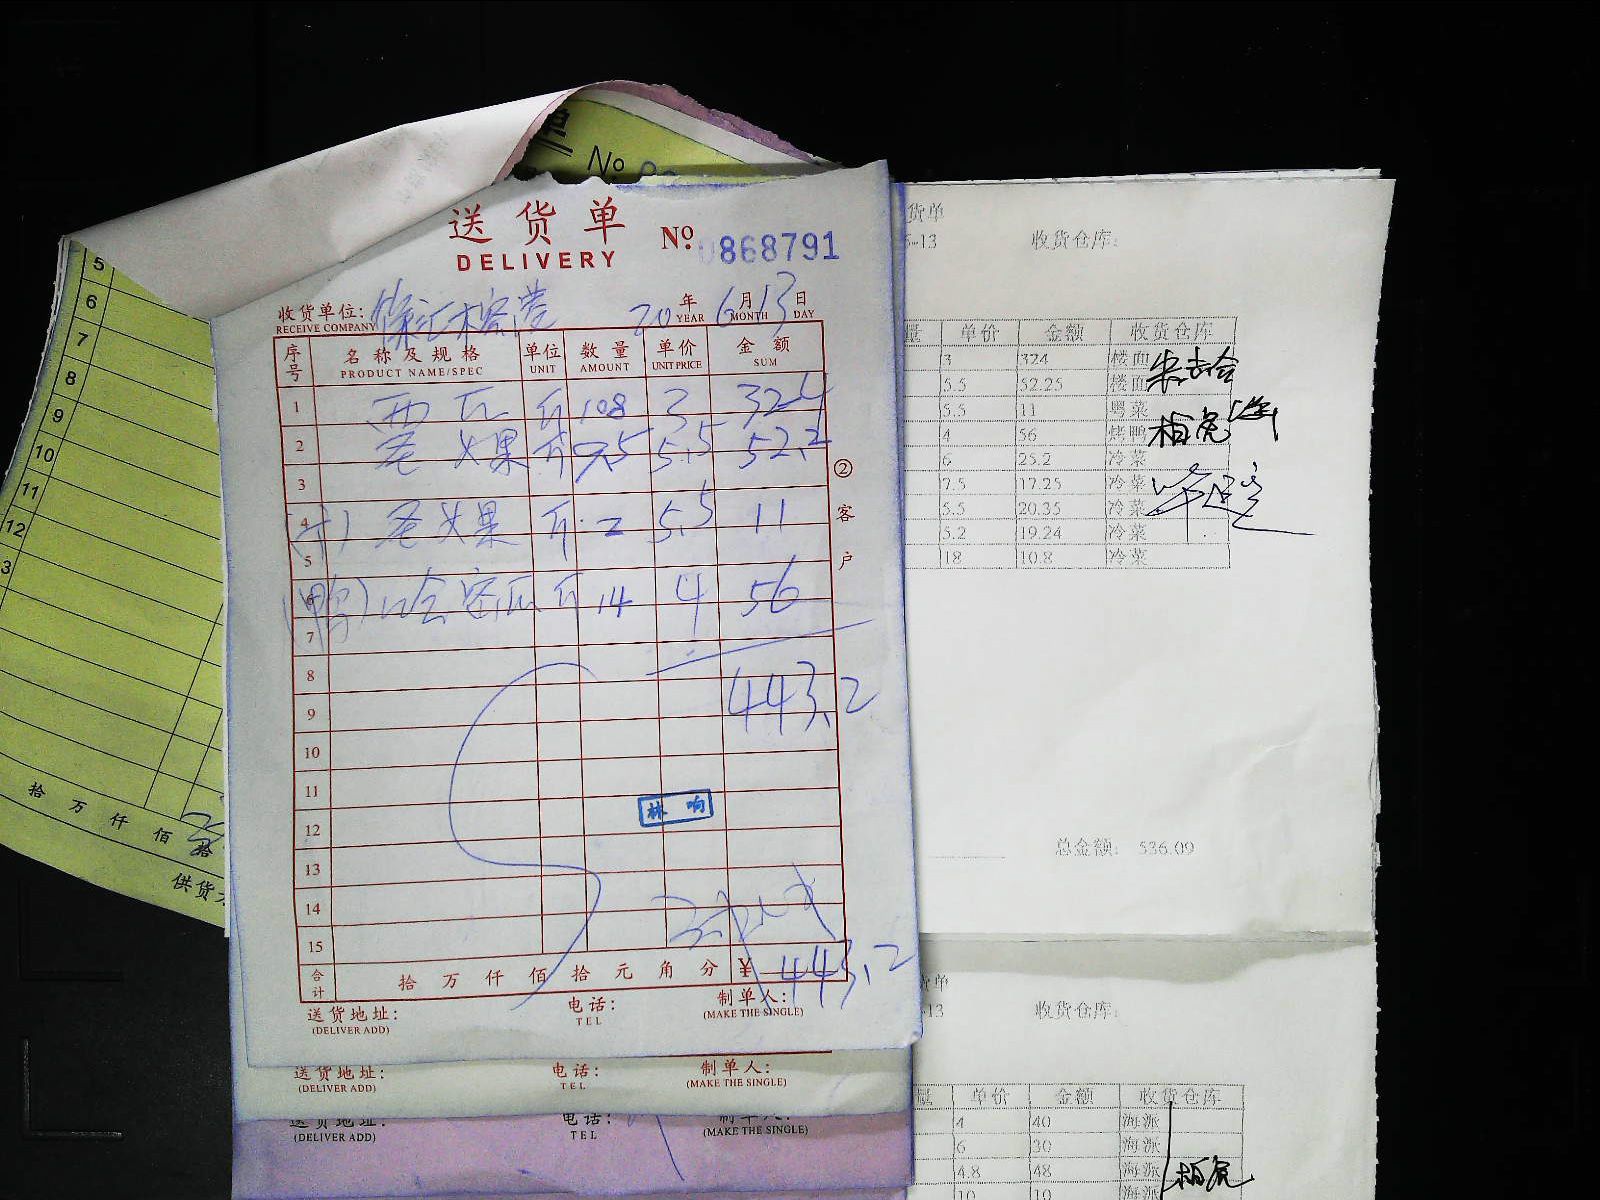 单
No
5
6
7
8
9
10
11
12
3
拾 万 仟 佰 拾
供货
送货单
DELIVERY
No. 0868791
收货单位:
RECEIVE COMPANY
20 年 6 月 13 日
YEAR MONTH DAY
序号 名称及规格 单位 数量 单价 金额
PRODUCT NAME/SPEC UNIT AMOUNT UNIT PRICE SUM
1 西瓜 斤 108 3 324
2 芒果 斤 9.5 5.5 52.2
3
4 芒果 斤 2 5.5 11
5
6 (鸭) 哈密瓜 斤 14 4 56
7
8
9 443.2
10
11
12
13
14
15
林响
合计 拾 万 仟 佰 拾 元 角 分 ¥ 443.2
送货地址: 电话: 制单人:
(DELIVER ADD) TEL (MAKE THE SINGLE)
② 客户
送货地址: 电话: 制单人:
(DELIVER ADD) TEL (MAKE THE SINGLE)
送货地址: 电话: 制单人:
(DELIVER ADD) TEL (MAKE THE SINGLE)
货单
-13 收货仓库:
量 单价 金额 收货仓库
3 324 楼面
5.5 52.25 楼面
5.5 11 粤菜
4 56 烤鸭
6 25.2 冷菜
7.5 17.25 冷菜
5.5 20.35 冷菜
5.2 19.24 冷菜
18 10.8 冷菜
总金额: 536.09
货单
-13 收货仓库:
量 单价 金额 收货仓库
4 40 海派
6 30 海派
4.8 48 海派
10 10 海派